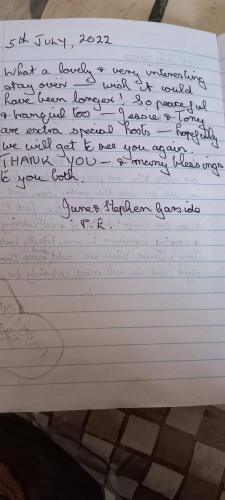 5th JULY, 2022
What a lovely & very interesting
stay over — wish it could
have been longer! So peaceful
& tranquil too — Jessie & Tony
are extra special hosts — hopefully
we will get to see you again.
THANK YOU — & many blessings
to you both.
June & Stephen Garside
P.E.